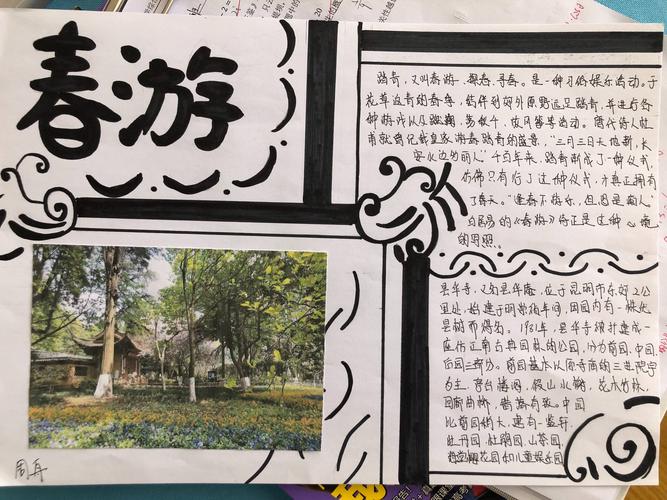 春游
踏青，又叫春游、探春、寻春。是一种习俗娱乐活动。于
花草返青的春季，结伴到郊外原野远足踏青，并进行各
种游戏以及蹴鞠、荡秋千、放风筝等活动。唐代诗人杜
甫就曾记载皇家游春踏青的盛景，“三月三日天地新，长
安水边多丽人”千百年来，踏青渐成了一种仪式，
仿佛只有行了这种仪式，才真正拥有
了春天。“逢春不游乐，但恐是痴人”
白居易的《春游》诗正是这种心境
的写照。
昙华寺，又名昙华庵，位于昆明市东郊2公
里处，始建于明崇祯年间，因园内有一株优
昙树而得名。1981年，昙华寺续打建成一
座仿江南古典园林的公园，分为前园、中园、
后园三部分。前园基本以原寺庙的三进院宇
为主，亭台楼阁，假山水榭，花木竹林，
回廊曲栁，错落有致。中园
比前园稍大，建有一鉴轩
牡丹园、杜鹃园、山茶园、
花园和儿童娱乐园
周舟